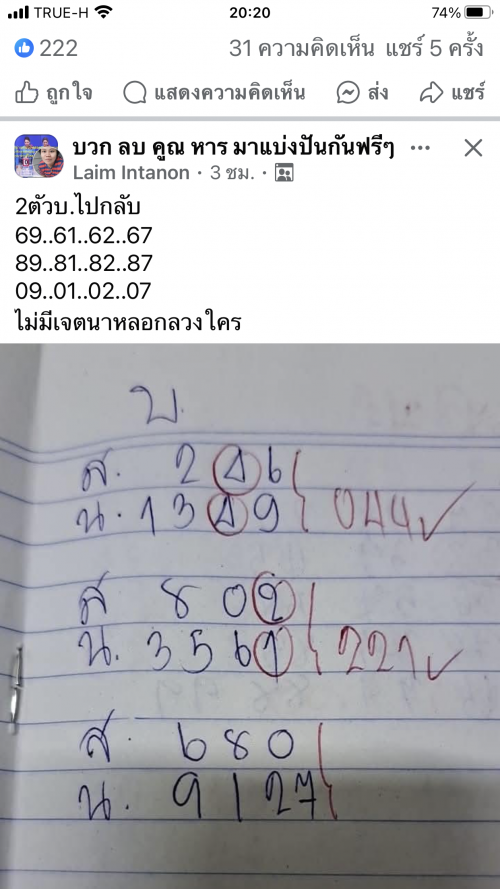 TRUE-H 20:20 74%
222 31 ความคิดเห็น แชร์ 5 ครั้ง
ถูกใจ แสดงความคิดเห็น ส่ง แชร์
บวก ลบ คูณ หาร มาแบ่งปันกันฟรีๆ
Laim Intanon · 3 ชม. ·
2ตัวบ.ไปกลับ
69..61..62..67
89..81..82..87
09..01..02..07
ไม่มีเจตนาหลอกลวงใคร
บ.
ส. 2 4 6
น. 1 3 4 9 044
ส 8 0 2
น. 3 5 6 1 221
ส. 6 8 0
น. 9 1 2 7